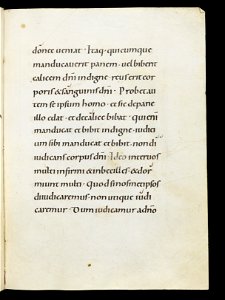 donec ueniat · Itaq; quicumque
manducauerit panem · uel biberit
calicem dñi indigne · reus erit cor
poris & sanguinis dñi · Probet au
tem se ipsum homo · et sic de pane
illo edat · et de calice bibat · Qui enī
manducat et bibit indigne · iudici
um sibi manducat et bibit · non di
iudicans corpus dñi · Ideo inter uos
multi infirmi & inbecilles · & dor
miunt multi · Quod si nosmetipsos
diiudicaremus · non utique iudi
caremur · Dum iudicamur a dño